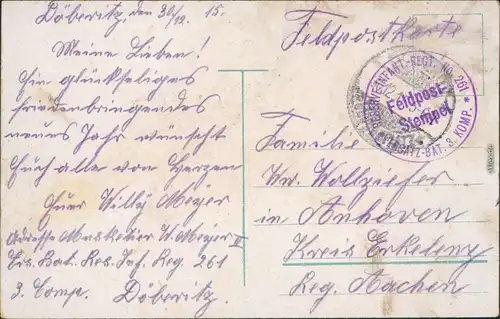 Döberitz, den 30/12. 15.
Meine Lieben!
Ein glückseliges
friedenbringendes
neues Jahr wünscht
Euch alle von Herzen
Euer Willÿ Meyer
Adresse Musketier W. Meyer II
Ers. Bat. Res. Inf. Reg. 261
3. Comp. Döberitz.
Feldpostkarte
INFANT.-REGT. No. 261 * ERSATZ-BAT. 3. KOMP.
Feldpost-
Stempel
Familie
Ww. Wollziefer
in Anhoven
Kreis Erkelenz
Reg. Aachen